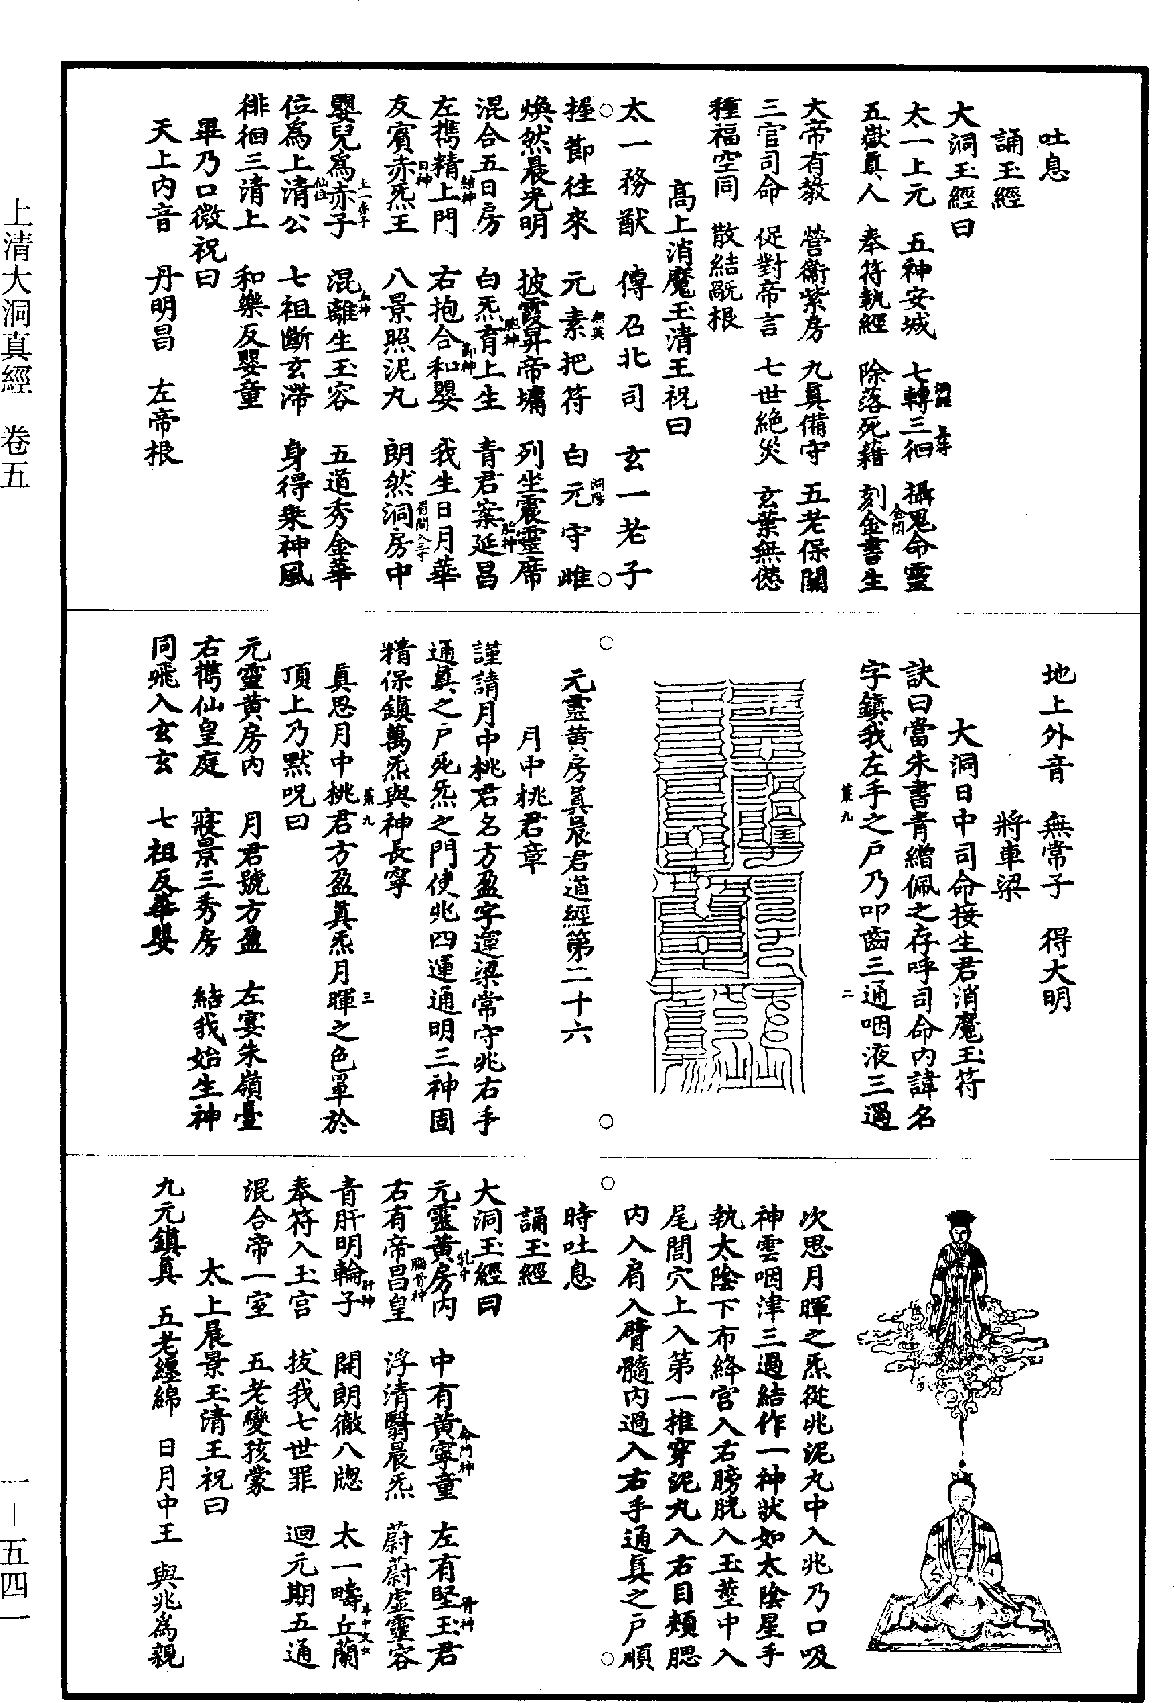 吐息
誦玉經
大洞玉經曰
太一上元　五神安城　七轉三徊　攝鬼命靈
五嶽真人　奉符執經　除落死藉　刻金書生
大帝有教　營衛紫房　九真備守　五老保關
三官司命　促對帝言　七世絕災　玄葉無愆
種福空同　散結翫根
高上消魔玉清王祝曰
太一務猷　傳召北司　玄一老子
握節往來　元素把符　白元守雌
煥然晨光明　披霞昇帝墉　列坐震靈席
混合五日房　白炁育上生　青君案延昌
左攜精上門　右抱合和嬰　我生日月華
友賓赤炁王　八景照泥丸　朗然洞房中
嬰兒為赤子　混離生玉容　五道秀金華
位為上清公　七祖斷玄滯　身得乘神風
徘徊三清上　和樂反嬰童
畢乃口微祝曰
天上內音　丹明昌　左帝根
地上外音　無常子　得大明
將車梁
大洞日中司命接生君消魔玉符
訣曰當朱書青繒佩之存呼司命內諱名
字鎮我左手之戶乃叩齒三通咽液三過
元靈黃房真晨君道經第二十六
月中桃君章
謹請月中桃君名方盈字運梁常守兆右手
通真之戶死炁之門使兆四運通明三神固
精保鎮萬炁與神長寧
真思月中桃君方盈真炁月暉之色罩於
頂上乃默呪曰
元靈黃房內　月君號方盈　左宴朱嶺臺
右攜仙皇庭　寢景三秀房　結我始生神
同飛入玄玄　七祖反華嬰
次思月暉之炁從兆泥丸中入兆乃口吸
神雲咽津三過結作一神狀如太陰星手
執太陰下布絳宮入右膀胱入玉莖中入
尾閭穴上入第一推穿泥丸入右目頰腮
內入肩入臂髓內過入右手通真之戶順
時吐息
誦玉經
大洞玉經曰
元靈黃房內　中有黃寧童　左有堅玉君
右有帝昌皇　浮清翳晨炁　蔚蔚虛靈容
青肝明輪子　開朗徹八牕　太一疇丘蘭
奉符入玉宮　拔我七世罪　迴元期五通
混合帝一室　五老變孩蒙
太上晨景玉清王祝曰
九元鎮真　五老纏綿　日月中王　與兆為親
上清大洞真經　卷五
一—五四一